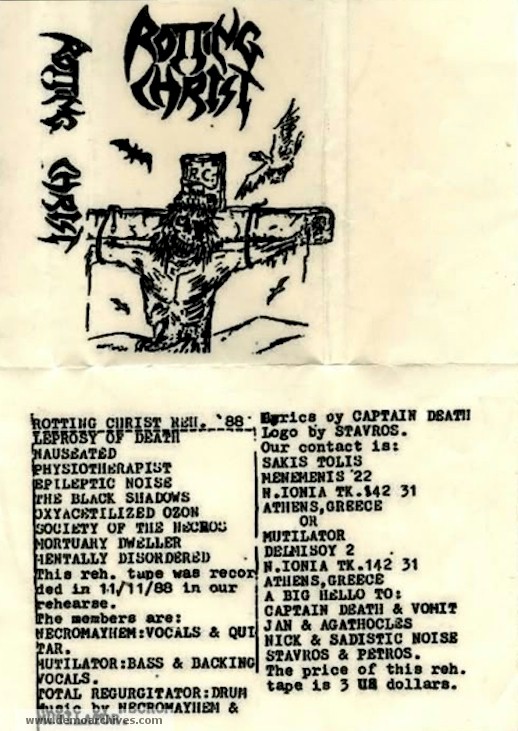 ROTTING
CHRIST
ROTTING CHRIST
R.C.
ROTTING CHRIST REH. '88
LEPROSY OF DEATH
NAUSEATED
PHYSIOTHERAPIST
EPILEPTIC NOISE
THE BLACK SHADOWS
OXYACETILIZED OZON
SOCIETY OF THE NECROS
MORTUARY DWELLER
MENTALLY DISORDERED
This reh. tape was recor
ded in 11/11/88 in our
rehearse.
The members are:
NECROMAYHEM:VOCALS & GUI
TAR.
MUTILATOR:BASS & BACKING
VOCALS.
TOTAL REGURGITATOR:DRUM
Music by NECROMAYHEM &
Lyrics by CAPTAIN DEATH
Logo by STAVROS.
Our contact is:
SAKIS TOLIS
MENEMENIS 22
N.IONIA TK.142 31
ATHENS,GREECE
OR
MUTILATOR
N.IONIA TK.142 31
ATHENS,GREECE
A BIG HELLO TO:
CAPTAIN DEATH & VOMIT
JAN & AGATHOCLES
NICK & SADISTIC NOISE
STAVROS & PETROS.
The price of this reh.
tape is 3 US dollars.
www.demoarchives.com